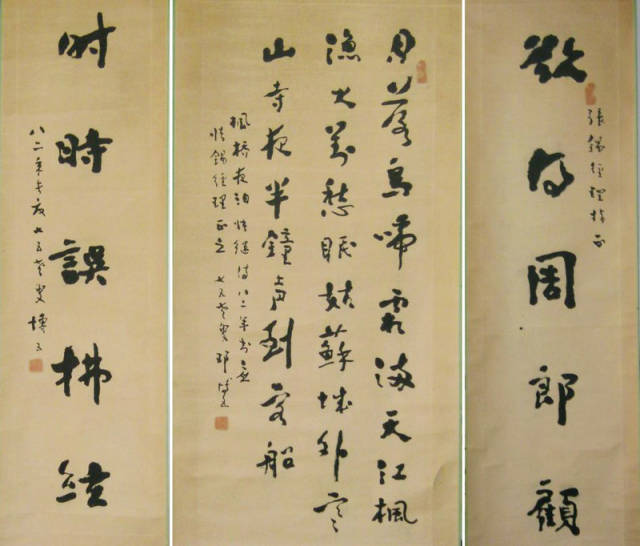 欲得周郎顧
張錫經理指正
月落烏啼霜滿天江楓
漁火對愁眠姑蘇城外寒
山寺夜半鐘聲到客船
楓橋夜泊張繼詩八二年書
張錫經理正之七五叟
时時誤拂絃
八二年七五叟博五